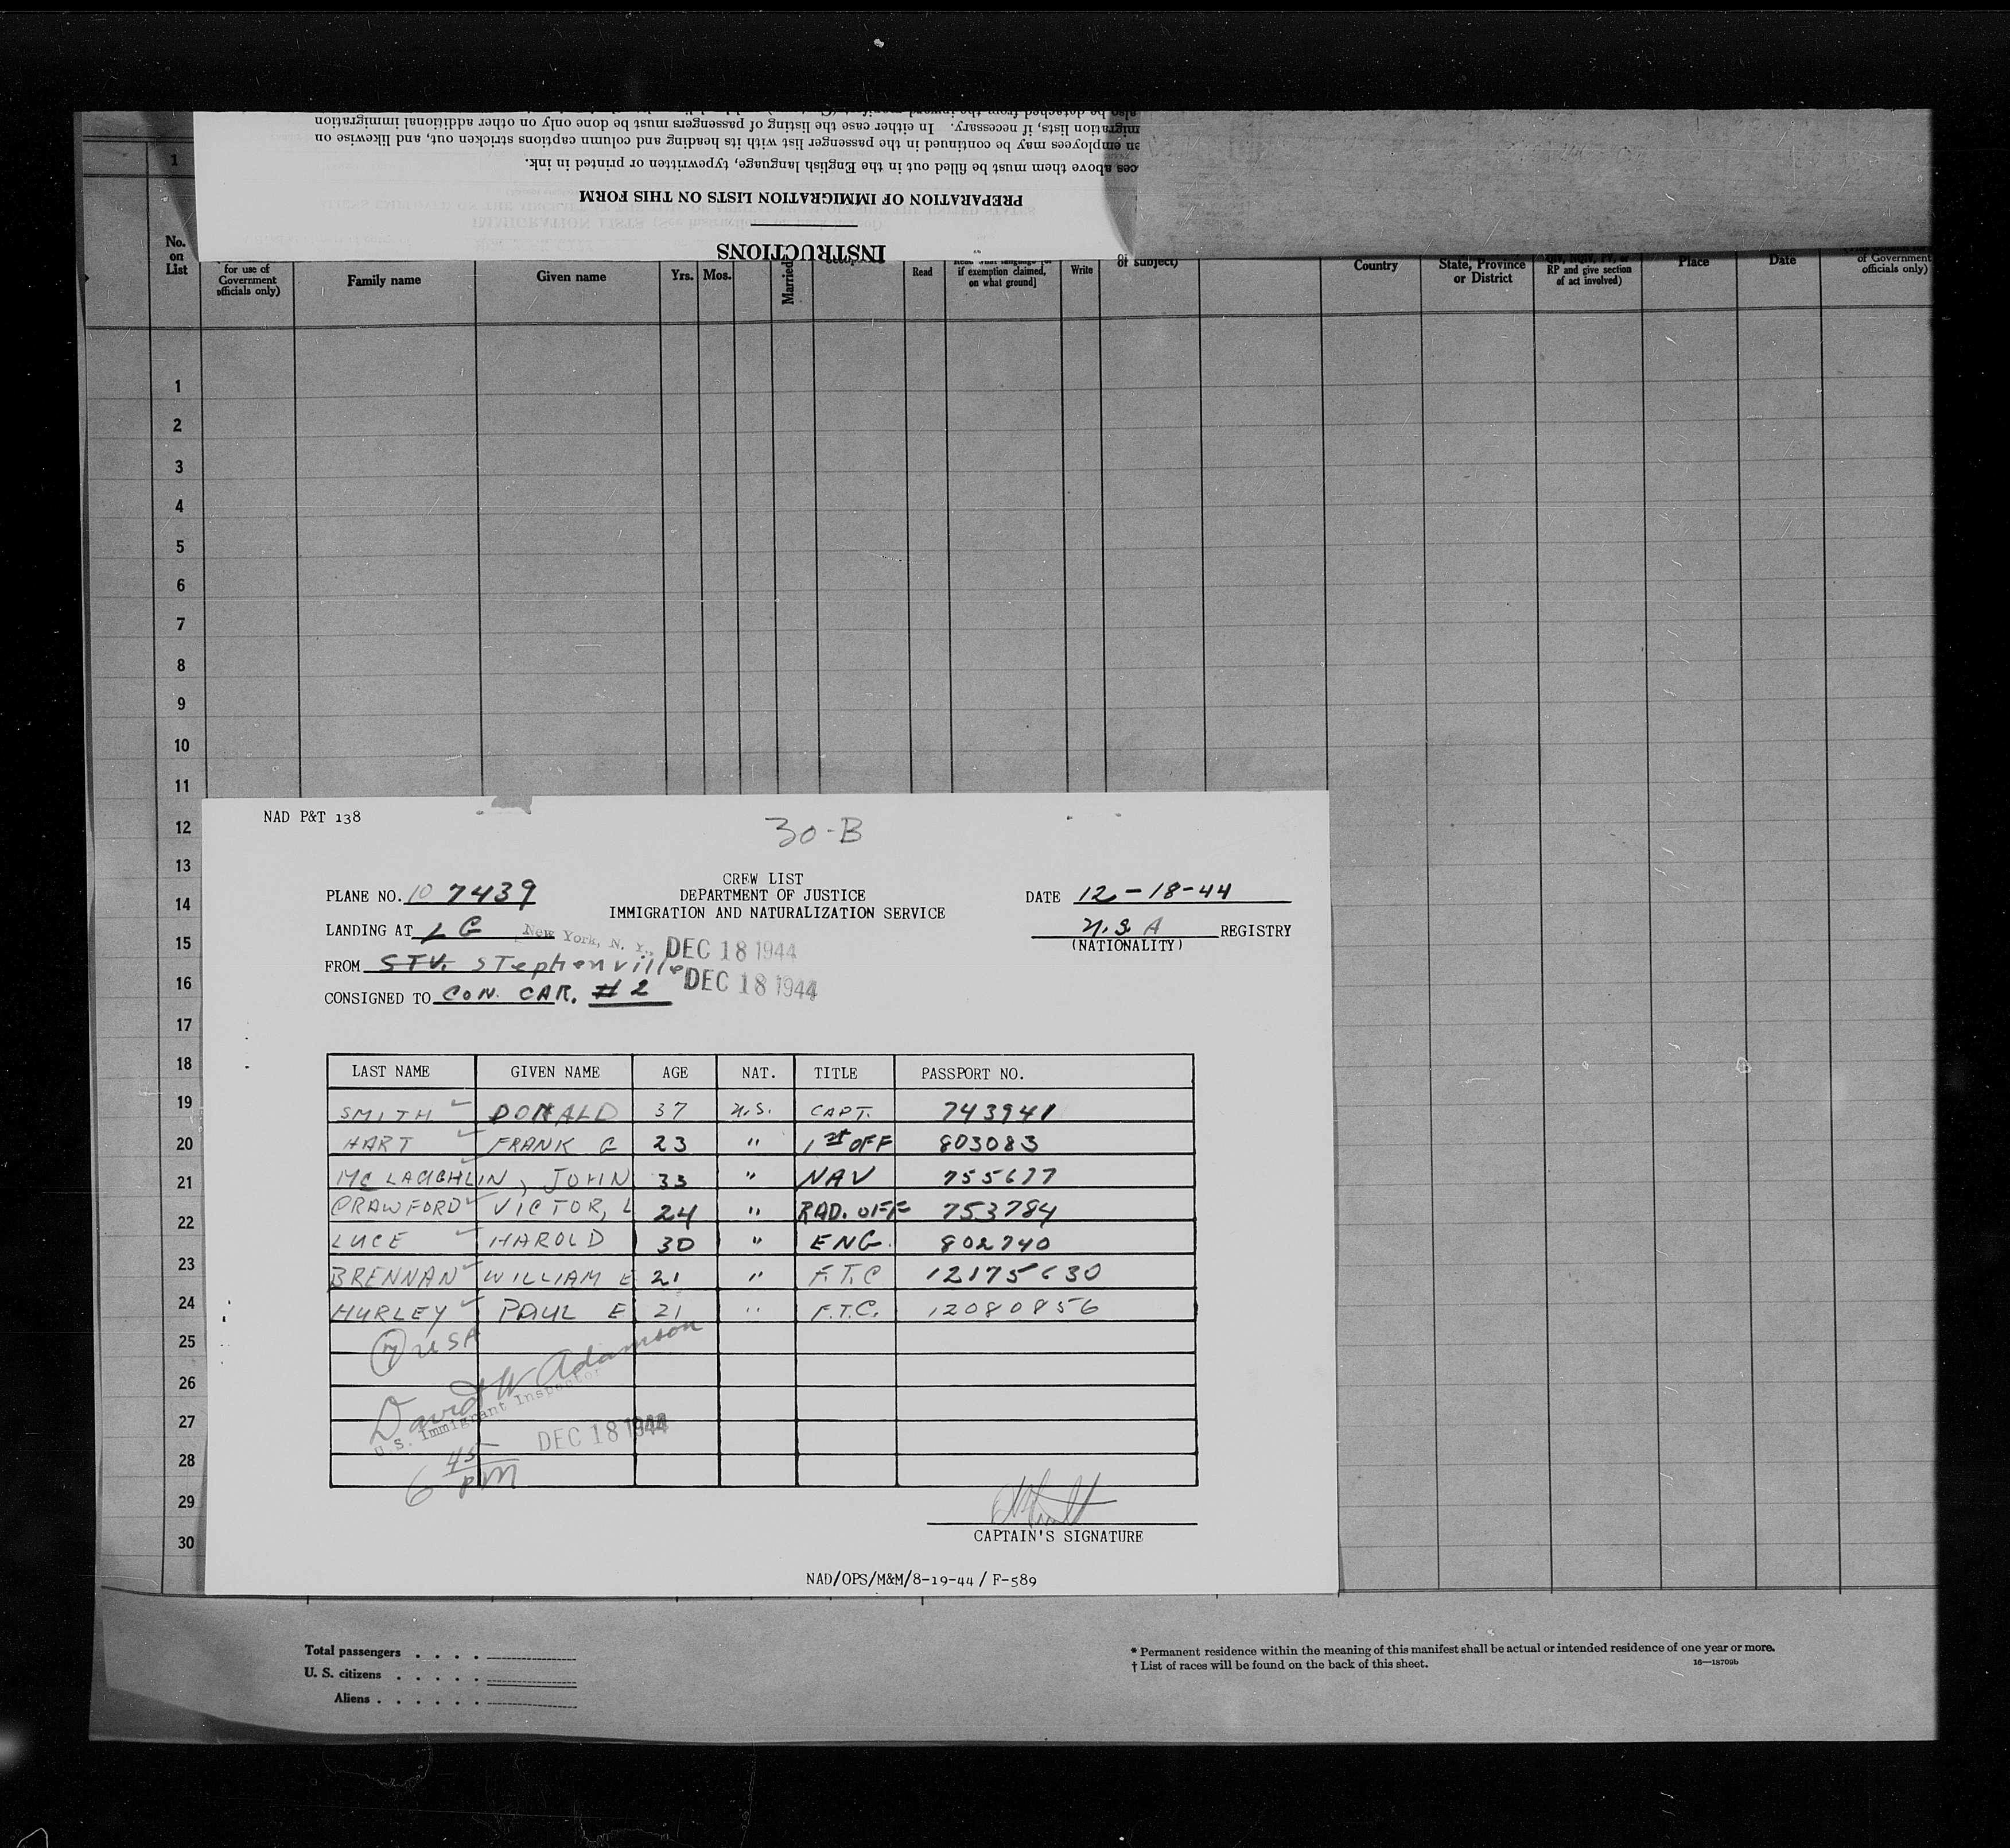 also be detached from the inward manifest
migration lists, if necessary. In either case the listing of passengers must be done only on other additional immigration
an employees may be continued in the passenger list with its heading and column captions stricken out, and likewise on
ces above them must be filled out in the English language, typewritten or printed in ink.
PREPARATION OF IMMIGRATION LISTS ON THIS FORM
INSTRUCTIONS
1
No. on List
for use of Government officials only)
Family name
Given name
Yrs.
Mos.
Married
Read
if exemption claimed, on what ground]
Write
of subject)
Country
State, Province or District
RP and give section of act involved)
Place
Date
of Government officials only)
1
2
3
4
5
6
7
8
9
10
11
12
13
14
15
16
17
18
19
20
21
22
23
24
25
26
27
28
29
30
NAD P&T 138
30-B
CREW LIST
PLANE NO. 10 7439 DEPARTMENT OF JUSTICE DATE 12-18-44
IMMIGRATION AND NATURALIZATION SERVICE
LANDING AT LG New York, N. Y., DEC 18 1944 U.S.A REGISTRY
(NATIONALITY)
FROM STV. STephenville DEC 18 1944
CONSIGNED TO CON. CAR. #2
LAST NAME GIVEN NAME AGE NAT. TITLE PASSPORT NO.
SMITH DONALD 37 U.S. CAPT. 743941
HART FRANK G 23 " 1st OFF 803083
MCLAUGHLIN, JOHN 33 " NAV 755677
CRAWFORD VICTOR, L 24 " RAD. OFF 753784
LUCE HAROLD 30 " ENG. 802740
BRENNAN WILLIAM E 21 " F.T.C 12175630
HURLEY PAUL E 21 " F.T.C. 12080856
7 USA
David W Adamson
U.S. Immigrant Inspector
DEC 18 1944
6 45 pm
CAPTAIN'S SIGNATURE
NAD/OPS/M&M/8-19-44 / F-589
Total passengers . . . .
U. S. citizens . . . . .
Aliens . . . . . .
* Permanent residence within the meaning of this manifest shall be actual or intended residence of one year or more.
† List of races will be found on the back of this sheet.
16—18709b